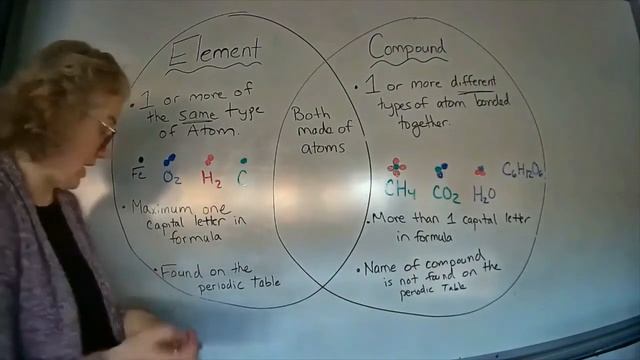 Element
• 1 or more of
the same type
of Atom.
Fe O₂ H₂ C
• Maximum one
capital letter in
formula
• Found on the
periodic table
Both
made of
atoms
Compound
• 1 or more different
types of atom bonded
together.
CH₄ CO₂ H₂O C₆H₁₂O₆
• More than 1 capital letter
in formula
• Name of compound
is not found on the
periodic table